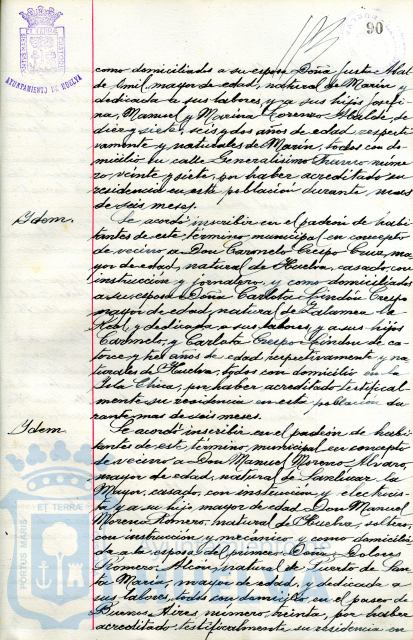 90
AYUNTAMIENTO DE HUELVA
como domiciliados a su esposa Doña Justa Abal
de Gmil, mayor de edad, natural de Marín y
dedicada a sus labores, y a sus hijos Josefi-
na, Manuel y Marina Lorenzo Abalde, de
diez y siete, seis y dos años de edad respecti-
vamente y naturales de Marín, todos con do-
micilio en calle Generalísimo Franco núme-
ro, veinte y siete, por haber acreditado su
residencia en esta población durante mas
de seis meses.
Idem.
Se acordó inscribir en el padrón de habi-
tantes de este término municipal en concepto
de vecino a Don Carmelo Crespo Cruz, ma-
yor de edad, natural de Huelva, casado, con
instrucción y jornalero, y como domiciliados
a su esposa Doña Carlota Lindón Crespo
mayor de edad, natural de Zalamea la
Real y dedicada a sus labores, y a sus hijos
Carmelo, y Carlota Crespo Lindón de ca-
torce y tres años de edad respectivamente y na-
turales de Huelva, todos con domicilio en la
Isla Chica, por haber acreditado testifical-
mente su residencia en esta población du-
rante mas de seis meses.
Idem
Se acordó inscribir en el padrón de habi-
tantes de este término municipal en concepto
de vecino a Don Manuel Moreno Alvaro,
mayor de edad, natural de Sanlucar la
Mayor, casado, con instrucción y electricis-
ta y a su hijo mayor de edad Don Manuel
Moreno Romero, natural de Huelva, soltero,
con instrucción y mecánico y como domicilia-
da a la esposa del primero Doña Dolores
Romero Alcón, natural de Puerto de San-
ta María, mayor de edad y dedicada a
sus labores, todos con domicilio en el paseo de
Buenos Aires número treinta, por haber
acreditado testifical­mente su residencia en
PORTUS MARIS
ET TERRÆ